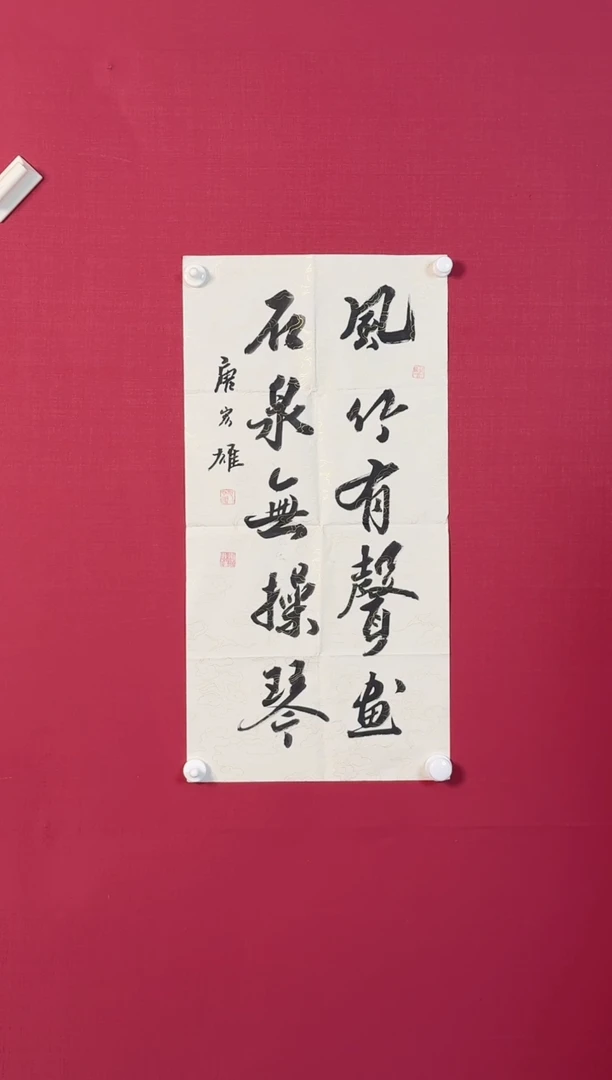 風竹有聲畫
石泉無操琴
唐宏雄